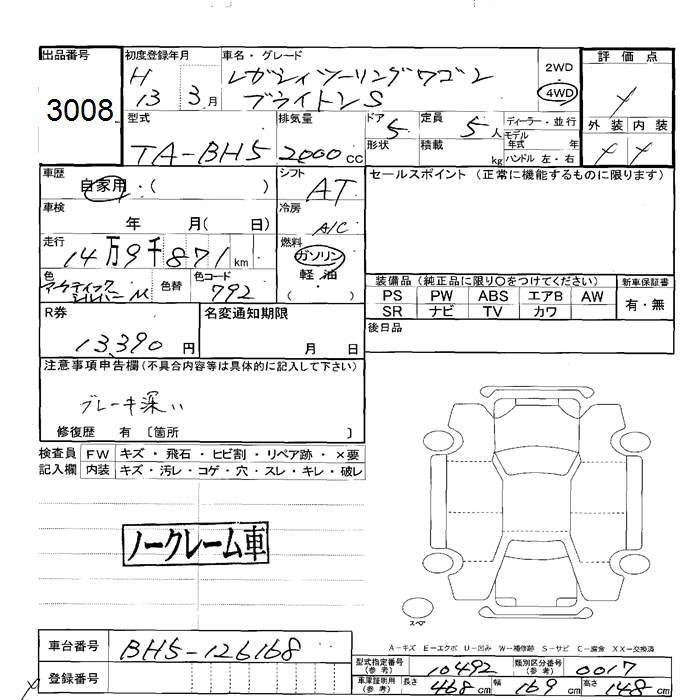 出品番号
3008
初度登録年月
H 13 3月
車名・グレード
レガシィツーリングワゴン
ブライトンS
2WD
・
4WD
評価点
外装 内装
型式
TA-BH5
排気量
2000cc
ドア 5
形状
定員 5人
積載 kg
ディーラー・並行
モデル
年式 年
ハンドル 左・右
車歴
自家用・( )
シフト
AT
セールスポイント (正常に機能するものに限ります)
車検
年 月( 日)
冷房
A/C
走行
14万9千871km
燃料
ガソリン
軽油
( )
色
アークティック
シルバーM
色替
色コード
792
装備品 (純正品に限り○をつけてください)
PS PW ABS エアB AW
SR ナビ TV カワ
新車保証書
有・無
R券
13,390円
名変通知期限
月 日
後日品
注意事項申告欄(不具合内容等は具体的に記入して下さい)
ブレーキ深い
修復歴 有 〔箇所 〕
検査員
記入欄
FW キズ・飛石・ヒビ割・リペア跡・×要
内装 キズ・汚レ・コゲ・穴・スレ・キレ・破レ
ノークレーム車
スペア
A-キズ E-エクボ U-凹み W-補修跡 S-サビ C-腐食 XX-交換済
車台番号
BH5-126168
登録番号
型式指定番号
(参考)
10492
類別区分番号
(参考)
0017
車庫証明用
(参考)
長さ 468cm 幅 169cm 高さ 148cm